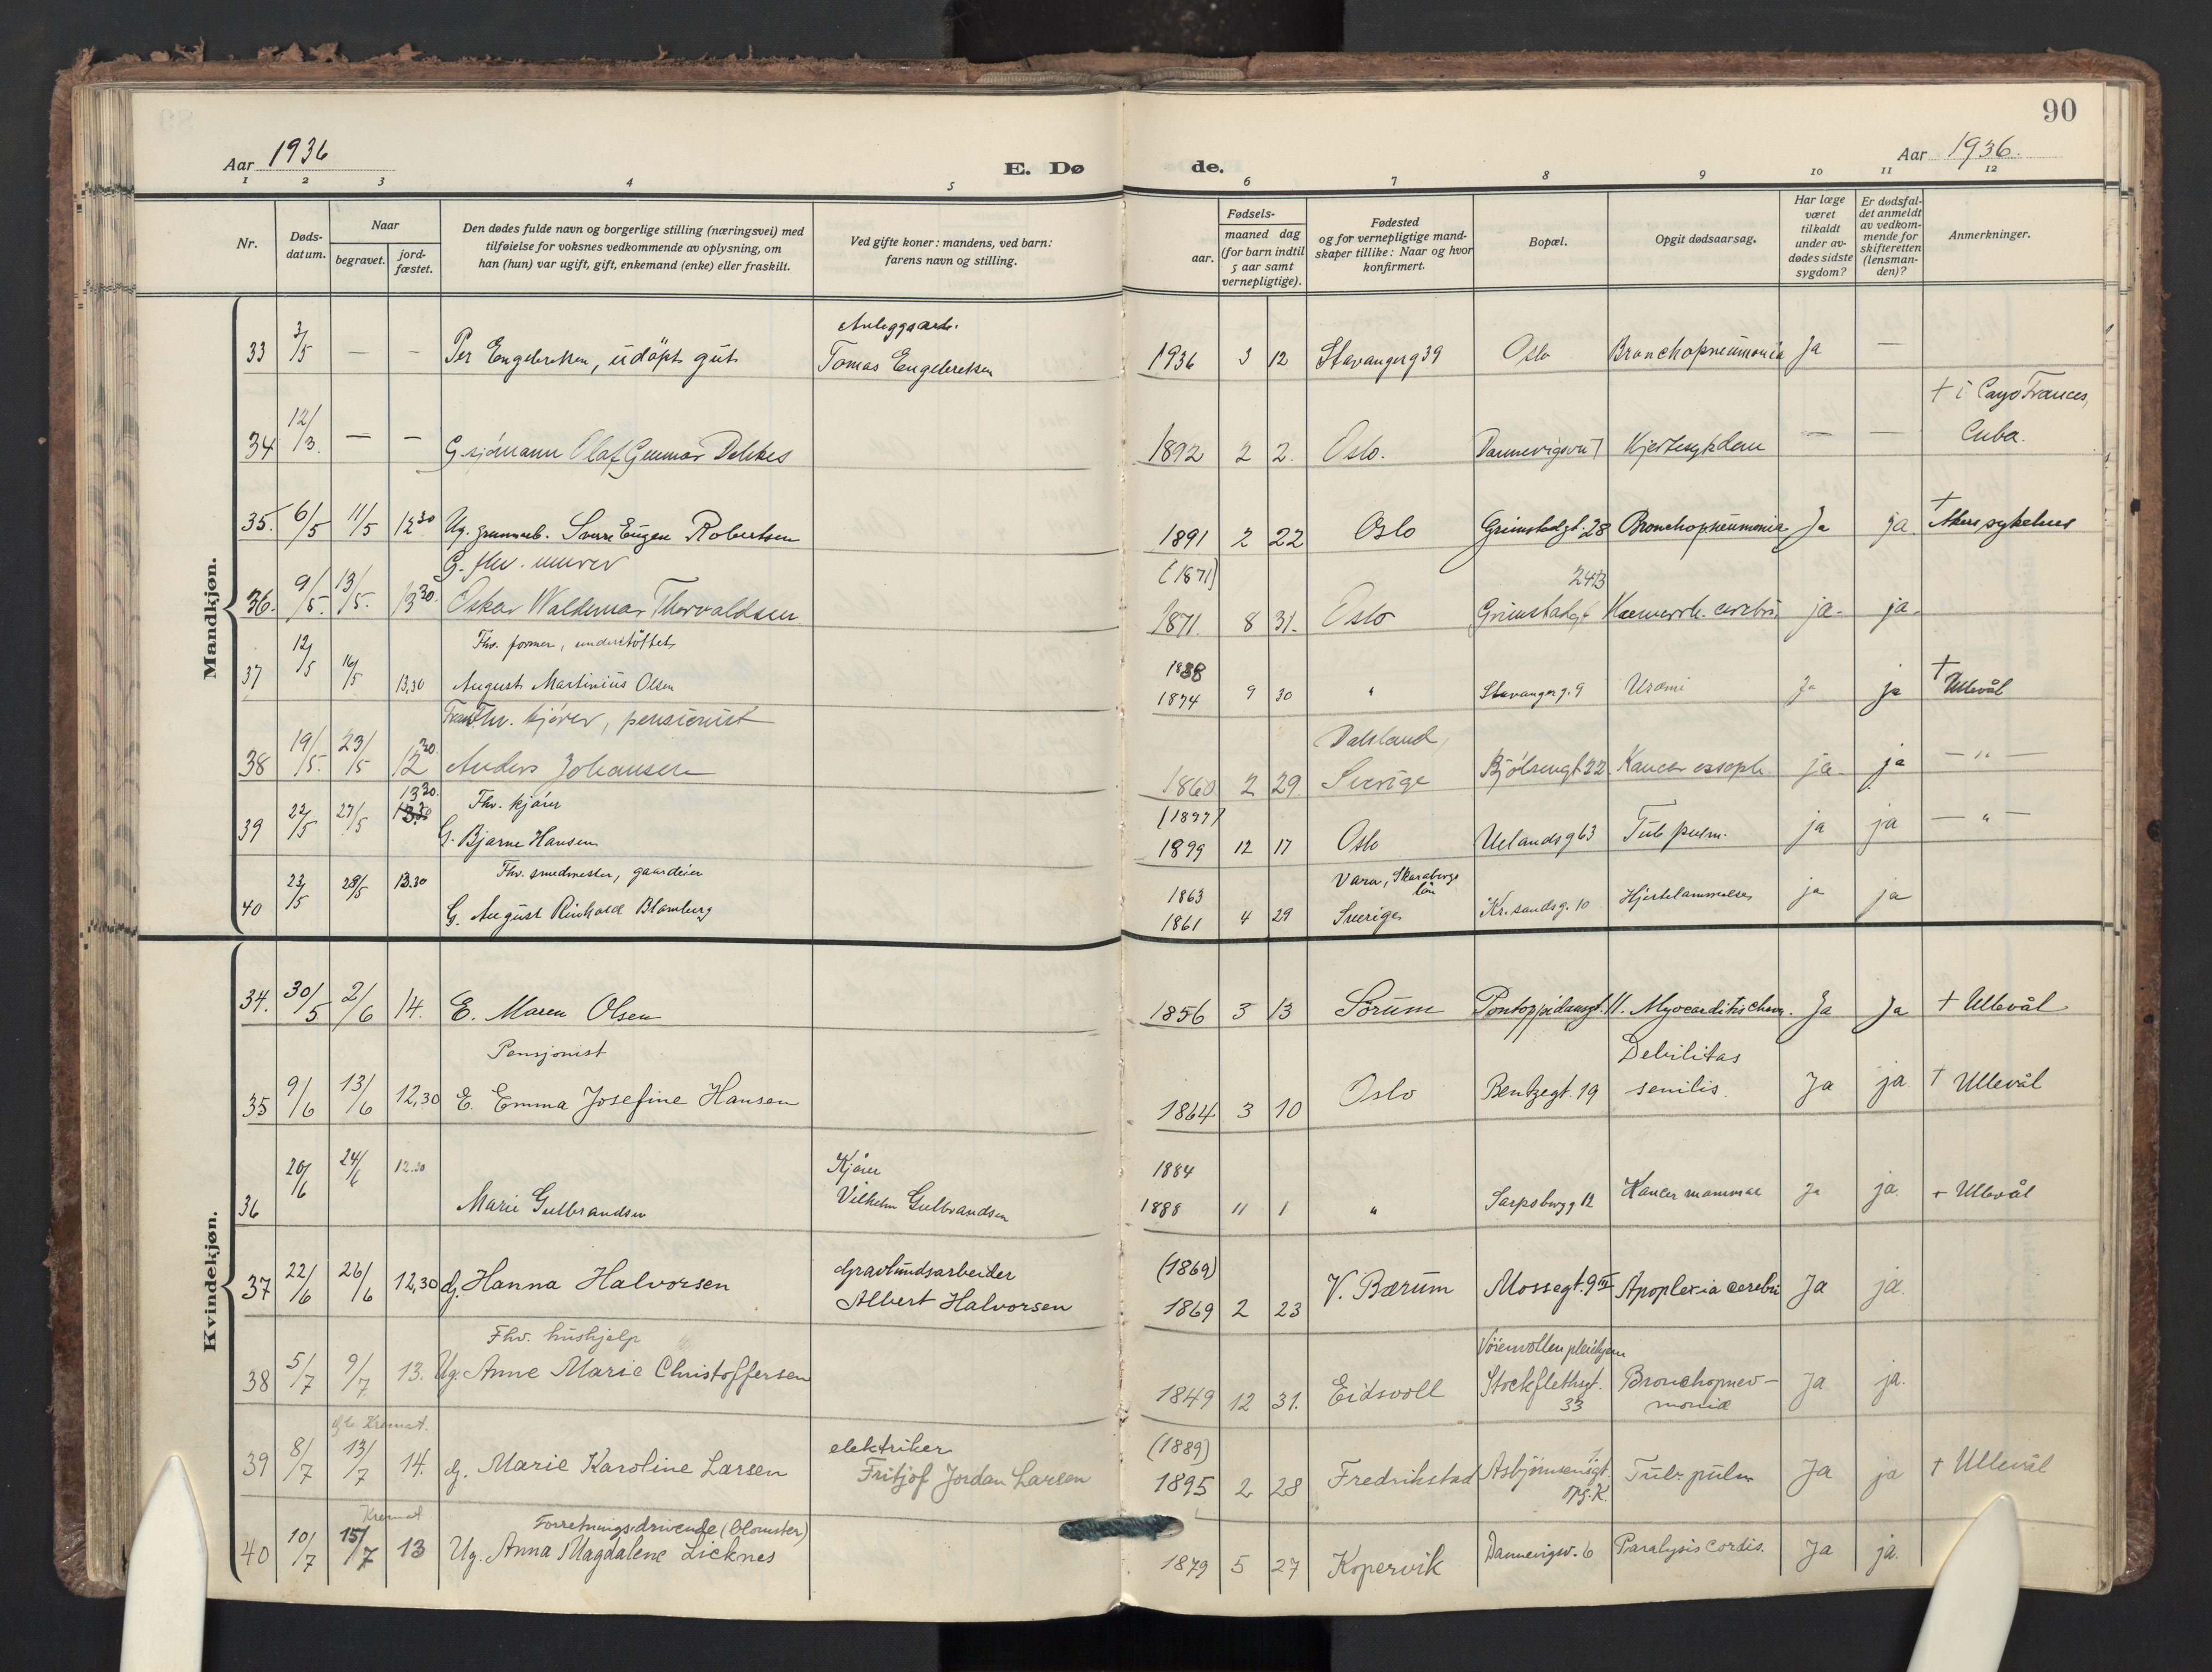 90
Aar 1936
E. Dø
de.
Aar 1936.
1 2 3 4 5 6 7 8 9 10 11 12
Nr.
Døds-
datum.
Naar
begravet.
jord-
fæstet.
Den dødes fulde navn og borgerlige stilling (næringsvei) med
tilføielse for voksnes vedkommende av oplysning, om
han (hun) var ugift, gift, enkemand (enke) eller fraskilt.
Ved gifte koner: mandens, ved barn:
farens navn og stilling.
Fødsels-
aar.
maaned dag
(for barn indtil
5 aar samt
vernepligtige).
Fødested
og for vernepligtige mand-
skaper tillike: Naar og hvor
konfirmert.
Bopæl.
Opgit dødsaarsag.
Har læge
været
tilkaldt
under av-
dødes sidste
sygdom?
Er dødsfal-
det anmeldt
av vedkom-
mende for
skifteretten
(lensman-
den)?
Anmerkninger.
Mandkjøn.
Anleggsarb.
33 3/5 — - Per Engebretsen, udöpt gut Tomas Engebretsen 1936 3 12 Stavangerg 39 Oslo Bronchopneumonia Ja —
† i Cayo Frances,
34 12/3. — - G. sjömann Olaf Gunnar 1892 2 2. Oslo. Dannevigsv. 7 Hjertesykdom — — Cuba.
35. 6/5 11/5 12 30 Ug. Sverre Eugen Robertsen 1891 2 22 Oslo Grimstadgt. 28 Bronchopneumonia Ja ja. † Akers sykehus
G. fhv. murer (1871) 24B
36. 9/5. 13/5. 13 30. Oskar Waldemar Thorvaldsen 1871. 8 31. Oslo Grimstadgt Hæmorrh. cerebri ja. ja.
Fhv. former, understöttet 1888
37 12/5 16/5 13,30 August Martinius Olsen 1874 9 30 " Stavangerg. 9 Uræmi Ja ja † Ullevål
Fhv. kjörer, pensionist Dalsland,
38 19/5. 23/5 12 30. Anders Johansen 1860 2 29 Sverige Bjölsengt 22 Kancer oesoph. ja. ja — " —
13 30. Fhv. kjörer (1897)
39 22/5 27/5 G. Bjarne Hansen 1899 12 17 Oslo Uelandsg 63 Tub. pulm. ja ja — " —
Fhv. smedmester, gaardeier 1863 Vara, Skaraborgs län
40 23/5 28/5 13.30 G. August Reinhold Blomberg 1861 4 29 Sverige Kr.sandsg. 10 Hjertelammelse ja ja
Kvindekjøn.
34. 30/5 2/6 14. E. Maren Olsen 1856 3 13 Sörum Pontoppidansgt. 11. Myocarditis chron. Ja Ja † Ullevål
Pensjonist Debilitas
35 9/6 13/6 12,30 E. Emma Josefine Hansen 1864 3 10 Oslo Bentzegt. 19 senilis. Ja ja. † Ullevål
Kjörer 1884
36 20/6 24/6 12.30 Marie Gulbrandsen Vilhelm Gulbrandsen 1888 11 1 " Sarpsborgg 12 Kancer mammae Ja ja. † Ullevål
Gravlundsarbeider (1869)
37 22/6 26/6 12,30 G. Hanna Halvorsen Albert Halvorsen 1869 2 23 V. Bærum Mossegt. 9 III Apoplexia cerebri Ja ja.
Fhv. hushjelp Vöienvollen pleiehjem
38 5/7 9/7 13. Ug. Anne Marie Christoffersen 1849 12 31. Eidsvoll Stockflethsgt. 33 Bronchopnev-
monia Ja ja.
Kremat. elektriker (1889)
39 8/7 13/7 14. G. Marie Karoline Larsen Fritjof Jordan Larsen 1895 2 28 Fredrikstad Asbjörnsensgt. 1 opg. K. Tub. pulm Ja ja † Ullevål
Kremat Forretningsdrivende (blomster)
40 10/7 15/7 13 Ug. Anna Magdalene Licknes 1879 5 27 Kopervik Dannevigsv. 6 Paralysis cordis. Ja ja.